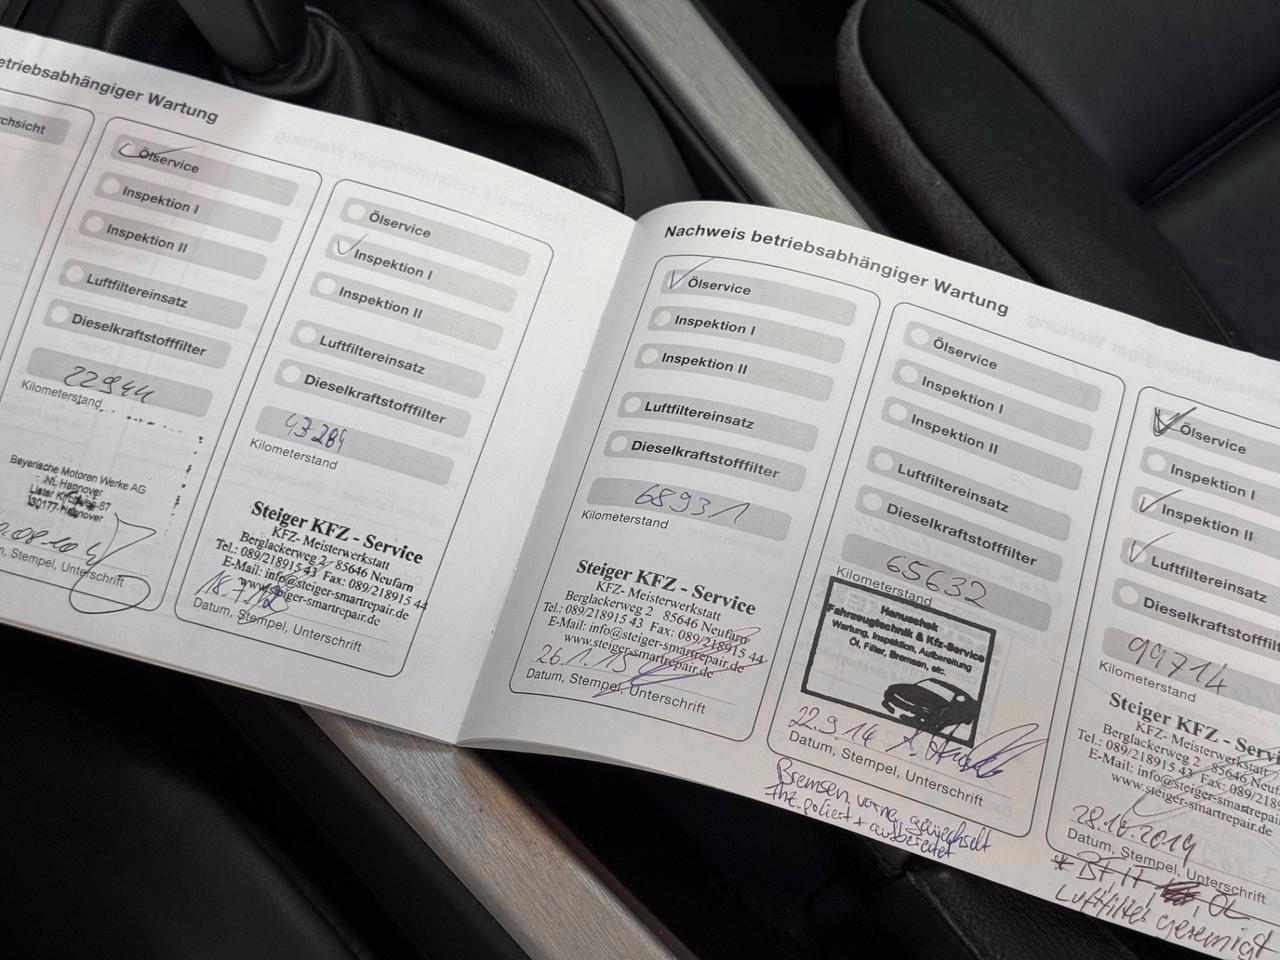 etriebsabhängiger Wartung
rchsicht
Ölservice
Inspektion I
Inspektion II
Luftfiltereinsatz
Dieselkraftstofffilter
22944
Kilometerstand
Bayerische Motoren Werke AG
NL Hannover
30177 Hannover
m, Stempel, Unterschrift
Ölservice
Inspektion I
Inspektion II
Luftfiltereinsatz
Dieselkraftstofffilter
43284
Kilometerstand
Steiger KFZ - Service
KFZ- Meisterwerkstatt
Berglackerweg 2 85646 Neufarn
Tel.: 089/218915 43 Fax: 089/218915 44
E-Mail: info@steiger-smartrepair.de
www.steiger-smartrepair.de
Datum, Stempel, Unterschrift
Nachweis betriebsabhängiger Wartung
Ölservice
Inspektion I
Inspektion II
Luftfiltereinsatz
Dieselkraftstofffilter
68931
Kilometerstand
Steiger KFZ - Service
KFZ- Meisterwerkstatt
Berglackerweg 2 85646 Neufarn
Tel.: 089/218915 43 Fax: 089/218915 44
E-Mail: info@steiger-smartrepair.de
www.steiger-smartrepair.de
26.1.15
Datum, Stempel, Unterschrift
Ölservice
Inspektion I
Inspektion II
Luftfiltereinsatz
Dieselkraftstofffilter
65632
Kilometerstand
Hanuschek
Fahrzeugtechnik & Kfz-Service
Wartung, Inspektion, Aufbereitung
Öl, Filter, Bremsen, etc.
22.9.14
Datum, Stempel, Unterschrift
Bremsen vorne gewechselt
poliert + aufbereitet
Ölservice
Inspektion I
Inspektion II
Luftfiltereinsatz
Dieselkraftstofffilt
99714
Kilometerstand
Steiger KFZ - Servi
KFZ- Meisterwerkstatt
Berglackerweg 2 85646 Neufarn
Tel.: 089/218915 43 Fax: 089/2189
E-Mail: info@steiger-smartrepai
www.steiger-smartrepair
28.10.2019
Datum, Stempel, Unterschrift
Luftfilter gereinigt